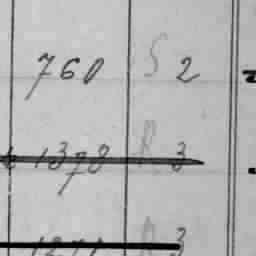 760 S 2
1378 R 3
R 3